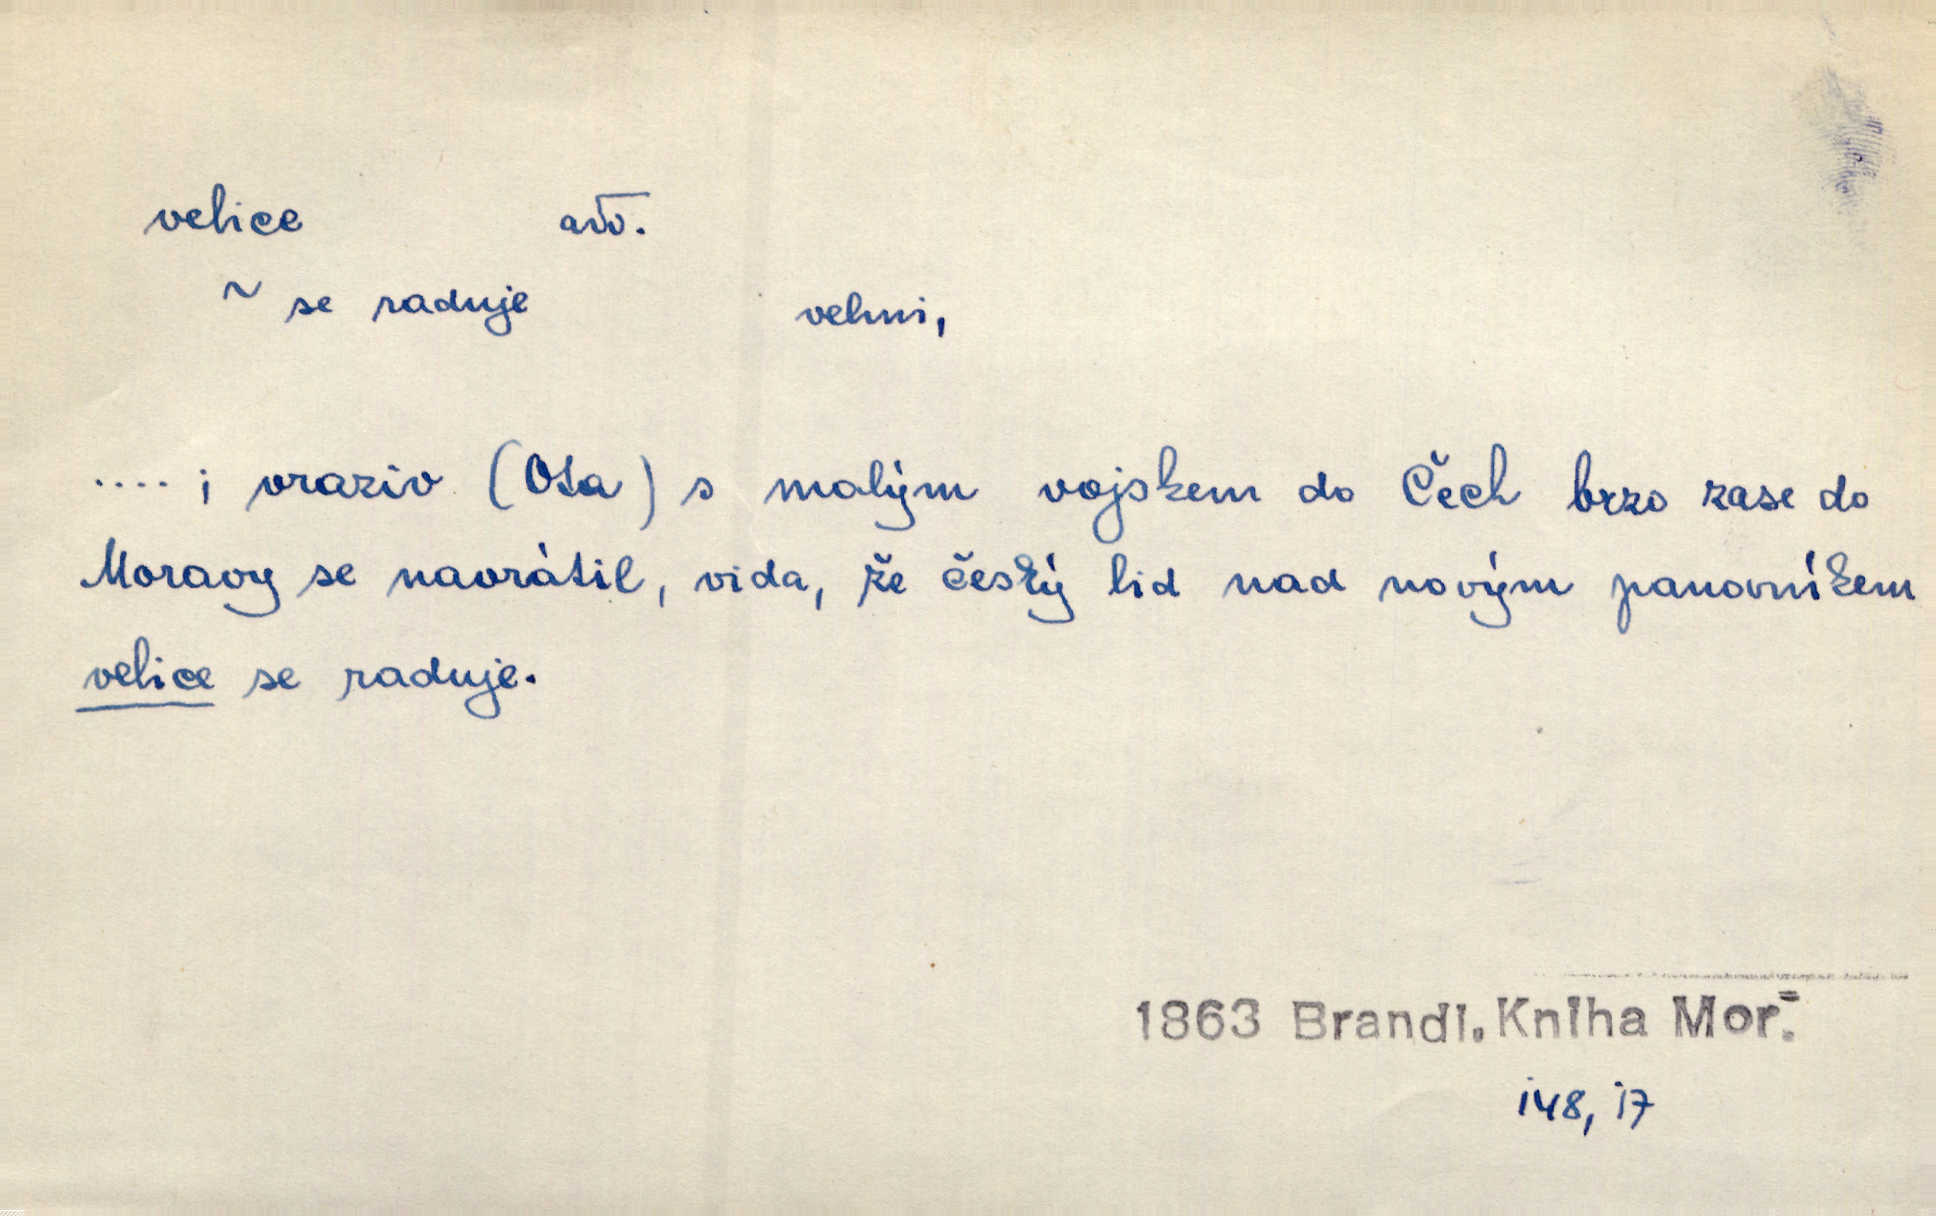 velice adv.
~ se raduje velmi,
.... ; vraziv (Ota) s malým vojskem do Čech brzo zase do
Moravy se navrátil, vida, že český lid nad novým panovníkem
velice se raduje.
1863 Brandl. Kniha Mor.
148, 17